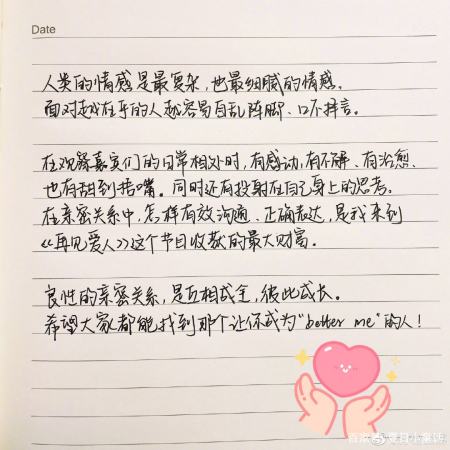 Date
人类的情感是最复杂,也最细腻的情感。
面对越在乎的人越容易自乱阵脚、口不择言。
在观察嘉宾们的日常相处时,有感动,有不解、有治愈、
也有甜到捂嘴。同时还有投射在自己身上的思考。
在亲密关系中,怎样有效沟通、正确表达,是我来到
《再见爱人》这个节目收获的最大财富。
良性的亲密关系,是互相成全,彼此成长。
希望大家都能找到那个让你成为“better me”的人!